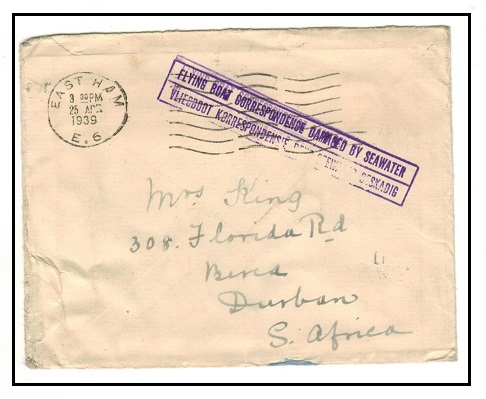 EAST HAM
3 PM
25 AP
1939
E.6
FLYING BOAT CORRESPONDENCE DAMAGED BY SEAWATER
VLIEGBOOT KORRESPONDENSIE BESKADIG
Mrs King
308. Florida Rd
Berea
Durban
S. Africa